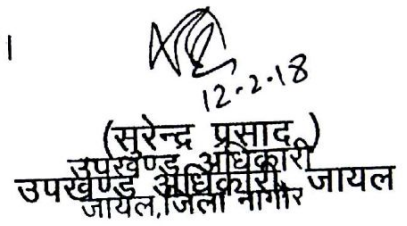 ।
12.2.18
(सुरेन्द्र प्रसाद )
उपखण्ड अधिकारी
उपखण्ड अधिकारी, जायल
जायल,जिला नागौर